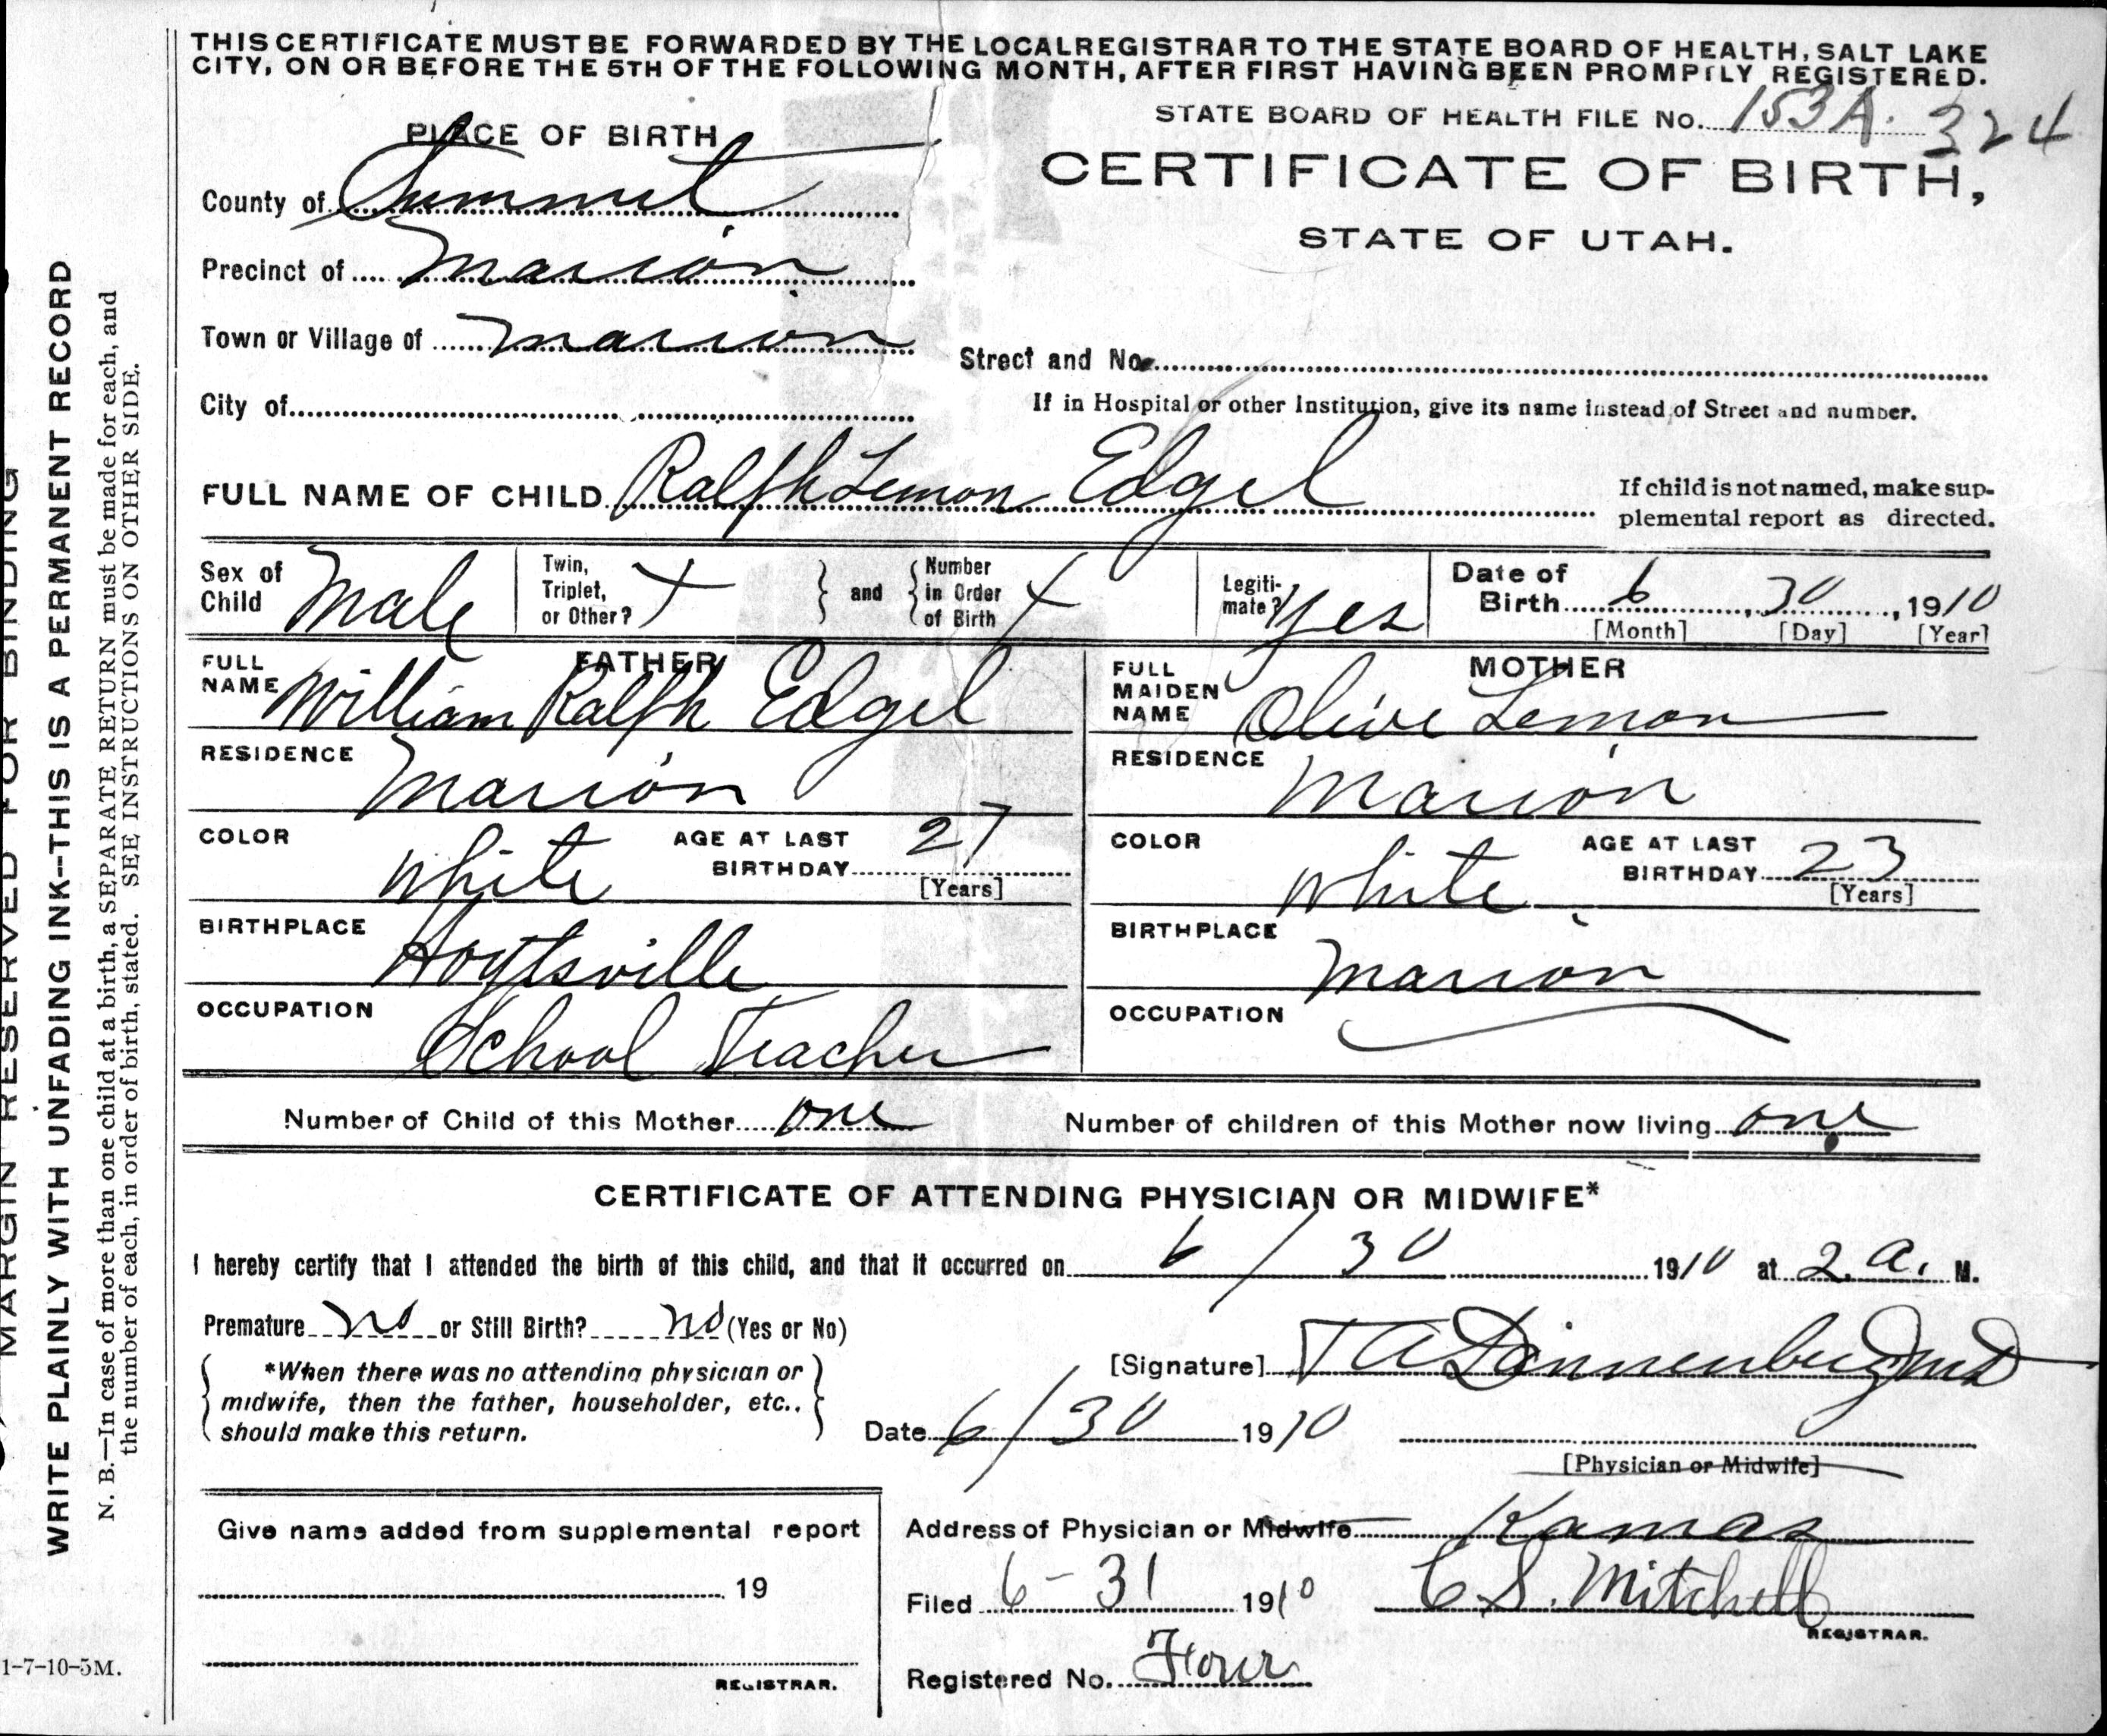 THIS CERTIFICATE MUST BE FORWARDED BY THE LOCAL REGISTRAR TO THE STATE BOARD OF HEALTH, SALT LAKE
CITY, ON OR BEFORE THE 5TH OF THE FOLLOWING MONTH, AFTER FIRST HAVING BEEN PROMPTLY REGISTERED.
STATE BOARD OF HEALTH FILE No. 153A. 324
PLACE OF BIRTH
CERTIFICATE OF BIRTH,
STATE OF UTAH.
County of Summit
Precinct of Marion
Town or Village of Marion
Street and No.
City of
If in Hospital or other Institution, give its name instead of Street and number.
FULL NAME OF CHILD Ralph Lemon Edgel
If child is not named, make sup-
plemental report as directed.
Sex of Child Male
Twin, Triplet, or Other? X
and
Number in Order of Birth X
Legiti-mate? Yes
Date of Birth 6, 30, 1910
[Month] [Day] [Year]
FATHER
FULL NAME William Ralph Edgel
RESIDENCE Marion
COLOR White
AGE AT LAST BIRTHDAY 27
[Years]
BIRTHPLACE Hoytsville
OCCUPATION School Teacher
MOTHER
FULL MAIDEN NAME Olive Lemon
RESIDENCE Marion
COLOR White
AGE AT LAST BIRTHDAY 23
[Years]
BIRTHPLACE Marion
OCCUPATION
Number of Child of this Mother one
Number of children of this Mother now living one
CERTIFICATE OF ATTENDING PHYSICIAN OR MIDWIFE*
I hereby certify that I attended the birth of this child, and that it occurred on 6/30 1910 at 2. a. M.
Premature no or Still Birth? no (Yes or No)
*When there was no attending physician or
midwife, then the father, householder, etc.,
should make this return.
[Signature] T A Dannenberg MD
Date 6/30 1910
[Physician or Midwife]
Give name added from supplemental report
19
REGISTRAR.
Address of Physician or Midwife Kamas
Filed 6-31 1910 C. S. Mitchell
REGISTRAR.
Registered No. Four
MARGIN RESERVED FOR BINDING
WRITE PLAINLY WITH UNFADING INK--THIS IS A PERMANENT RECORD
N. B.—In case of more than one child at a birth, a SEPARATE RETURN must be made for each, and
the number of each, in order of birth, stated. SEE INSTRUCTIONS ON OTHER SIDE.
1-7-10-5M.